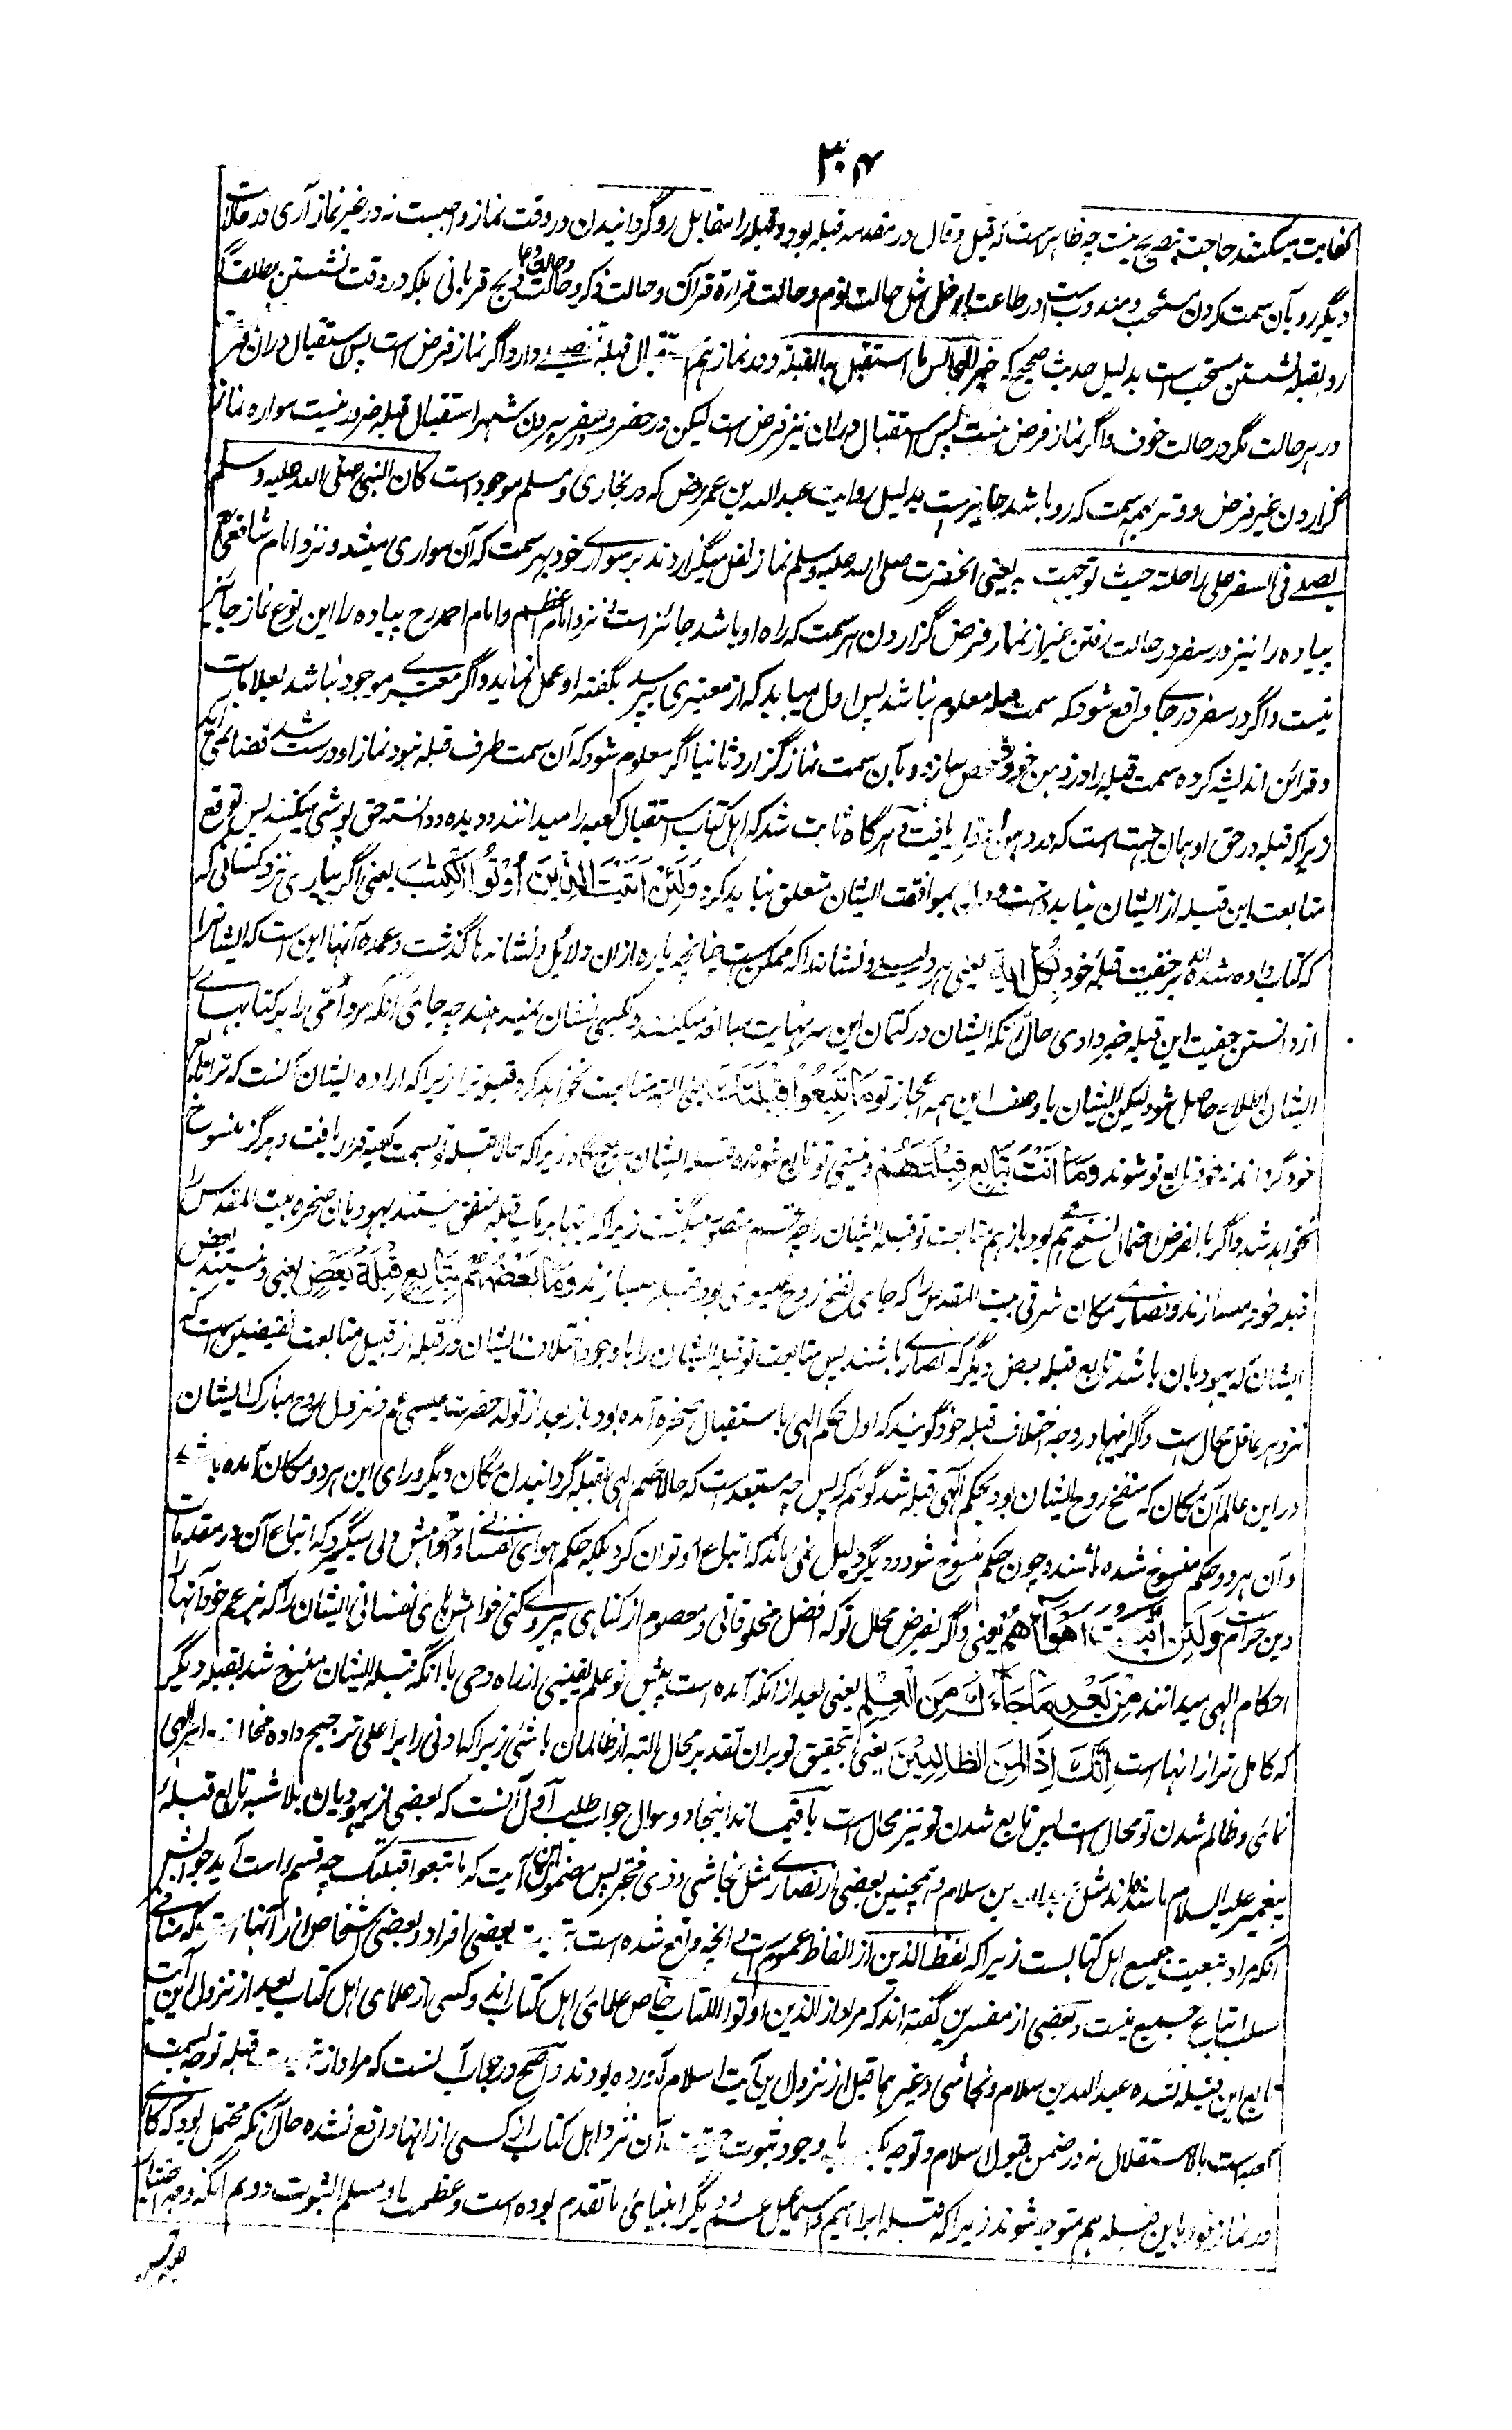 ۳۰۴
کفایت میکنند حاجت تصریح نیست چه ظاهر است که قیل و قال در مقدمه قبله بود و قبله را مقابل رو گردانیدن در وقت نماز واجبست نه در غیر نماز آری در حالات
دیگر رو بآن سمت کردن مستحب و مندوب است در طاعت مثل حالت نوم و حالت قراءة قرآن و حالت ذکر و حالت دعا و حالت ذبح قربانی بلکه در وقت نشستن مطلقا
رو بقبله نشستن مستحب است بدلیل حدیث صحیح که خیر المجالس ما استقبل بها القبلة و در نماز هم استقبال قبله تفصیلے دارد اگر نماز فرض است پس استقبال در ان فرض
در هر حالت مگر در حالت خوف و اگر نماز فرض نیست پس استقبال در ان نیز فرض است لیکن در حضر و سفر بیرون شهر استقبال قبله ضرور نیست سواره نماز
گزاردن غیر فرض و وتر بهر سمت که رو باشد جائز است بدلیل روایت عبد الله بن عمر رض که در بخاری و مسلم موجود است کان النبی صلی الله علیه و سلم
یصلے فی السفر علی راحلته حیث توجهت به یعنی آنحضرت صلی الله علیه و سلم نماز نفل میگزاردند بر سواری خود بهر سمت که آن سواری میشد و نزد امام شافعی رح
پیاده را نیز در سفر در حالت رفتن غیر از نماز فرض گزاردن بهر سمت که راه او باشد جائز است و نزد امام اعظم و امام احمد رح پیاده را این نوع نماز جائز
نیست و اگر در سفر در جاے واقع شود که سمت قبله معلوم نباشد پس اول میباید که از معتبری پرسد بگفته او عمل نماید و اگر معتبرے موجود نباشد بعلامات
و قرائن اندیشه کرده سمت قبله را در ذهن خود مشخص سازد و بآن سمت نماز گزارد و ثانیا اگر معلوم شود که آن سمت طرف قبله نبود نماز او درست شد قضا نمی آید
زیرا که قبله در حق او همان جهت است که در هر گاه ثابت شد که اهل کتاب استقبال کعبه را میدانند و دیده و دانسته حق پوشی میکنند پس توقع
متابعت این قبله از ایشان نباید داشت و دل بموافقت ایشان متعلق نباید کرد وَلَئِنْ أَتَيْتَ الَّذِيْنَ أُوْتُوا الْكِتٰبَ یعنی اگر بیاری نزد کسانی که
که کتاب داده شده اند بر حقیت قبله خود بِكُلِّ اٰيَةٍ یعنی هر دلیلے و نشانه که ممکن است چنانچه پاره ازان دلائل و نشانه ها گذشت و عمده آنها این است که ایشانرا
از دانستن حقیت این قبله خبر دادی حال آنکه ایشان در کتمان این سر نهایت مبالغه میکنند و بکسی نشان نمیدهند چه جای آنکه مرد امی را بر کتابهاے
ایشان اطلاع حاصل شود لیکن ایشان با وصف این همه اعجاز تو مَا تَبِعُوْا قِبْلَتَكَ یعنی البته متابعت نخواهند کرد قبله ترا زیرا که اراده ایشان آنست که ترا تابع
خود گردانند نه خود تابع تو شوند وَمَا أَنْتَ بِتَابِعٍ قِبْلَتَهُمْ و نیستی تو تابع شونده قبله ایشان هیچ گاه زیرا که حالا قبله تو بسمت کعبه قرار یافت و هرگز منسوخ
نخواهد شد و اگر بالفرض احتمال نسخ هم بود باز هم متابعت تو قبله ایشان را متصور نیست زیرا که اینها بر یک قبله متفق نیستند یهودیان صخره بیت المقدس را
قبله خود میسازند و نصارے مکان شرقی بیت المقدس را که جای نفخ روح عیسوی بود قبله میسازند وَمَا بَعْضُهُمْ بِتَابِعٍ قِبْلَةَ بَعْضٍ یعنی و نیستند بعض
ایشان که یهودیان باشند تابع قبله بعض دیگر که نصارے باشند پس متابعت تو قبله ایشان را با وجود اختلاف ایشان در قبله از قبیل متابعت نقیضین است که
نزد هر عاقل محال است و اگر اینها در وجه اختلاف قبله خود گویند که اول حکم الهی با استقبال صخره آمده بود باز بعد از تولد حضرت عیسی ع م و نزول روح مبارک ایشان
در این عالم آن مکان که منفخ روح ایشان بود بحکم الهی قبله شد گوئیم که پس چه مستبعد است که حالا حکم الهی بقبله گردانیدن مکان دیگر ورای این هر دو مکان آمده باشد
و آن هر دو حکم منسوخ شده باشند و چون حکم منسوخ شود دیگر دلیل نمی ماند که اتباع او توان کرد بلکه حکم هوای نفسانی و خواهش دلی میگیرد که اتباع آن در مقدمات
دین حرام است وَلَئِنِ اتَّبَعْتَ أَهْوَآءَهُمْ یعنی و اگر بفرض محال تو که افضل مخلوقاتی و معصوم از گناهی پیروے کنی خواهش های نفسانی ایشان را که بزعم خود آنها را
احکام الهی میدانند مِنْ بَعْدِ مَا جَآءَكَ مِنَ الْعِلْمِ یعنی بعد از آنکه آمده است پیش تو علم یقینی از راه وحی با آنکه قبله ایشان منسوخ شد بقبله دیگر
که کامل تر از انهاست اِنَّكَ إِذًا لَّمِنَ الظَّالِمِيْنَ یعنی بتحقیق تو بران تقدیر محال البته از ظالمان باشی زیرا که ادنی را بر اعلی ترجیح داده مخالفت امر الهی
نمائی و ظالم شدن تو محال است پس تابع شدن تو نیز محال است باقی ماند اینجا دو سوال جواب طلب اول آنست که بعضی از یهودیان بلا شبه تابع قبله
پیغمبر علیه السلام شدند مثل عبد الله بن سلام و همچنین بعضی از نصارے مثل نجاشی و ذی مخبر پس مضمون این آیت که ما تبعوا قبلتک چه قسم راست آید جوابش
آنکه مراد تبعیت جمیع اهل کتابست زیرا که لفظ الذین از الفاظ عموم است و آنچه واقع شده است تبعیت بعضی افراد و بعضی اشخاص از آنها است که منافی
سلب اتباع جمیع نیست و بعضی از مفسرین گفته اند که مراد از الذین اوتوا الکتاب خاص علمای اهل کتاب اند و کسی از علمای اهل کتاب بعد از نزول این آیت
تابع این قبله نشده عبد الله بن سلام و نجاشی و غیر هما قبل از نزول این آیت اسلام آورده بودند و اصح در جواب آنست که مراد از تبعیت قبله توجه بسمت
کعبه است بالاستقلال نه در ضمن قبول اسلام و توجه با وجود ثبوت حقیت آن نزد اهل کتاب از کسی از انها واقع نشده حال آنکه محتمل بود که گاهے
در نماز خود باین قبله هم متوجه شوند زیرا که قبله ابراهیم و اسماعیل ع م و دیگر انبیای ما تقدم بوده است و عظمت او مسلم الثبوت دوم آنکه وجه اختیار